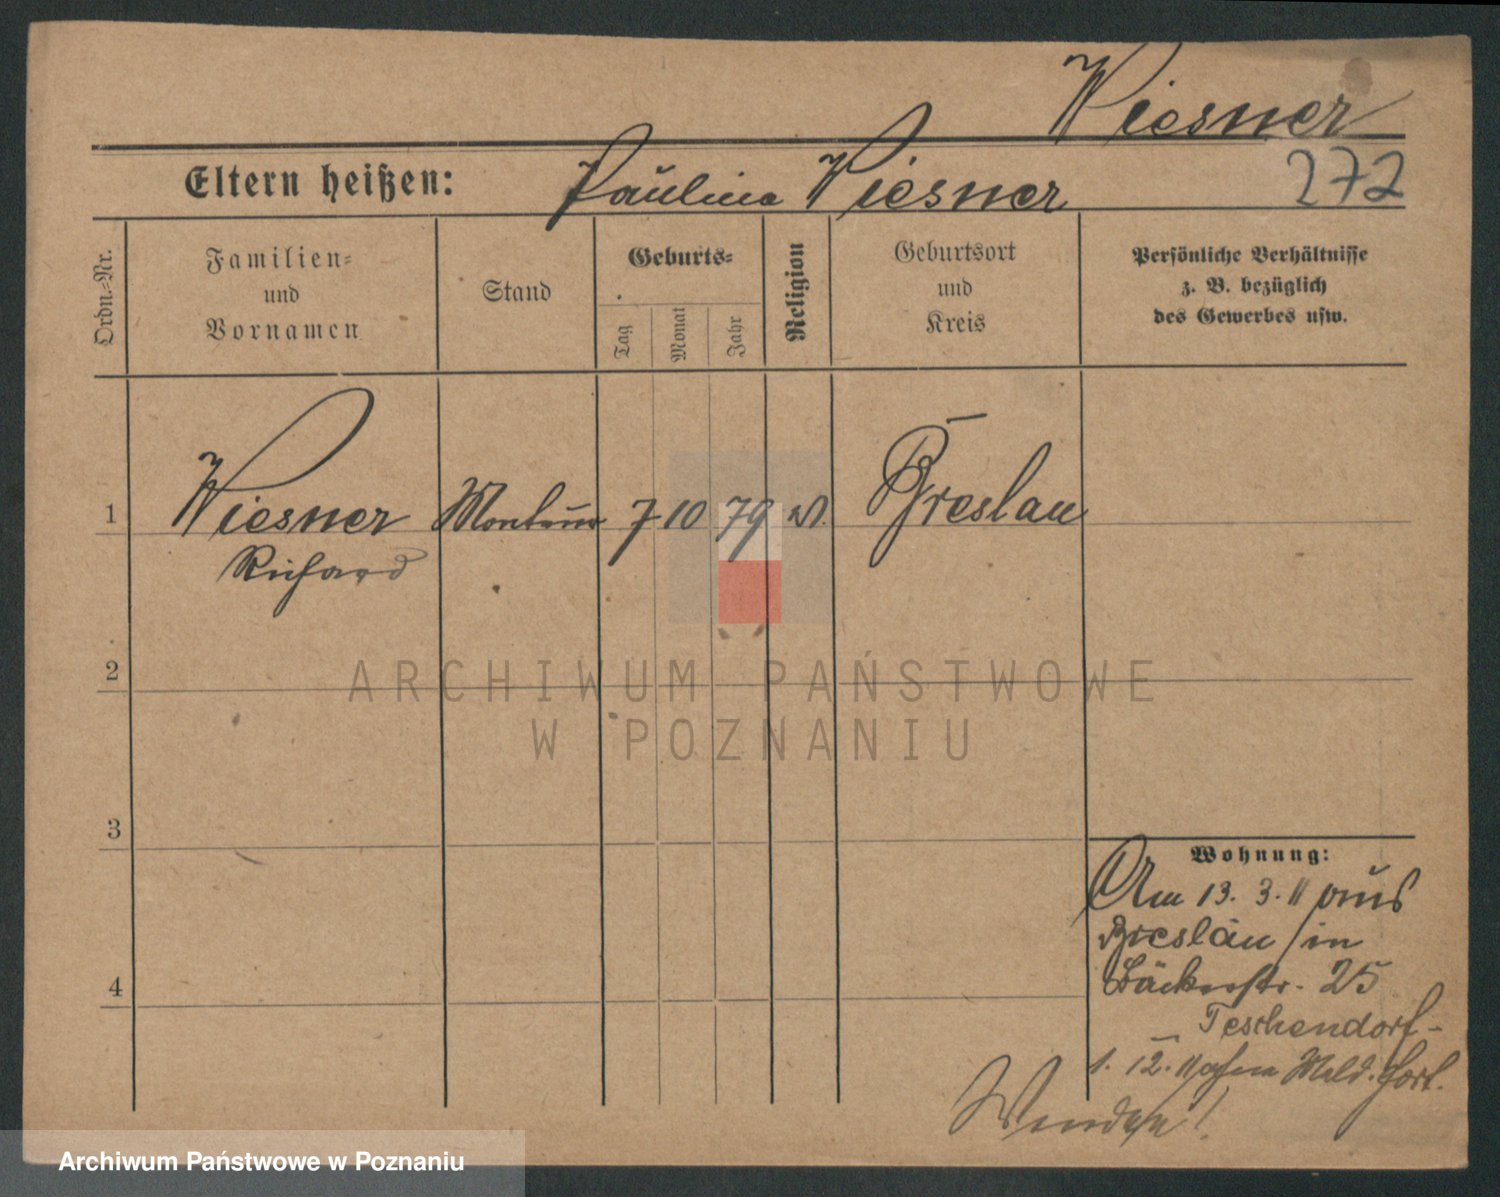 Wiesner
Eltern heißen: Paulina Wiesner 272
Ordn.-Nr.
Familien-
und
Vornamen
Stand
Geburts-
Tag
Monat
Jahr
Religion
Geburtsort
und
Kreis
Persönliche Verhältnisse
z. B. bezüglich
des Gewerbes usw.
1 Wiesner Monteur 7 10 79 Breslau
Richard
2
3
4
Wohnung:
Am 13. 3. 11 aus
Breslau in
Bäckerstr. 25
Teschendorf-
1. 12. 11 ohne Meld. fort.
Wenden!
ARCHIWUM PAŃSTWOWE
W POZNANIU
Archiwum Państwowe w Poznaniu